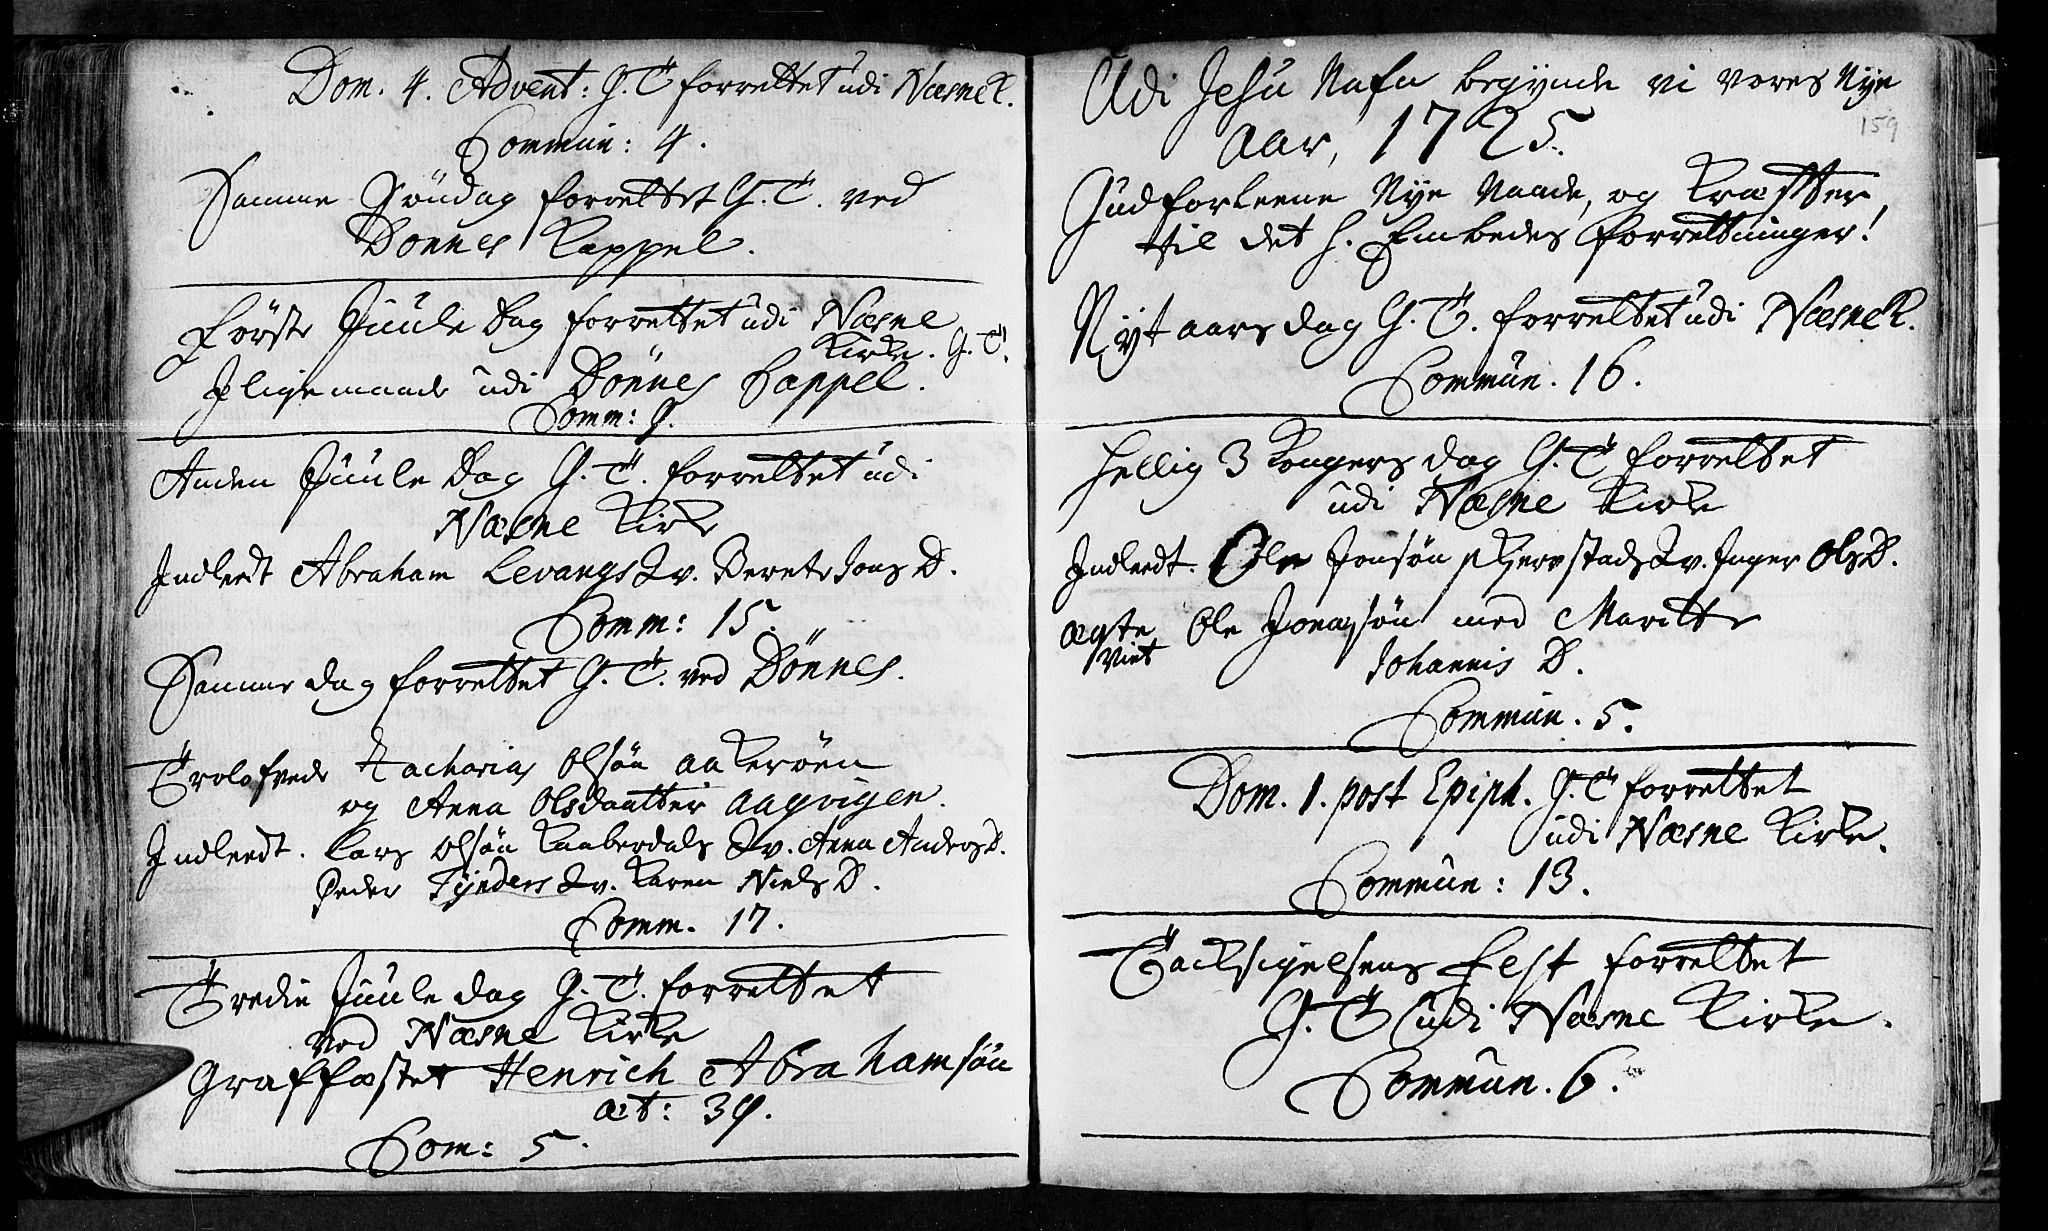 Dom. 4. Advent: G. T. forrettet udi Næsne K.
Commun: 4.
Samme Søndag forrettet G. T. ved
Dønnes Cappel.
Første Juule Dag forrettet udi Næsne
Kirke. G. T.
Jligemaade udi Dønnes Cappel.
Comm: 9.
Anden Juule Dag G. T. forrettet udi
Næsne Kirke
Indleedt Abraham Levangs Qv. Berete Jons D.
Comm: 15.
Samme dag forrettet G. T. ved Dönnes.
Trolofvede Zacharias Olsøn Aakerøen
og Anna Olsdaatter Aagvigen.
Indleedt. Lars Olsøn Kaaberdals Qv. Anna Anders D.
Peder Tynders Qv. Karen Niels D.
Comm. 17.
Tredie Juule dag G. T. forrettet
ved Næsne Kirke
Graffæstet Henrich Abrahamsøn
æt: 39.
Com: 5.
Udi Jesu Nafn begynde vi vores Nye
Aar, 1725.
159
Gud forleene Nye Naade, og Kræffter,
til det H. Embedes forrettninger!
Nyt aars dag G. T. forrettet udi Næsne K.
Commun. 16.
Hellig 3 Kongers dag G. T. forrettet
udi Næsne Kirke
Indleedt. Ole Jonsøn Kjerstads Qv. Inger Ols D.
Ægte Ole Jonassøn med Maritte
viet
Johannis D.
Commun. 5.
Dom. 1. post Epiph. G. T. forrettet
udi Næsne Kirke.
Commun: 13.
Tacksigelsens Fest forrettet
G. T. udi Næsne Kirke.
Commun. 6.